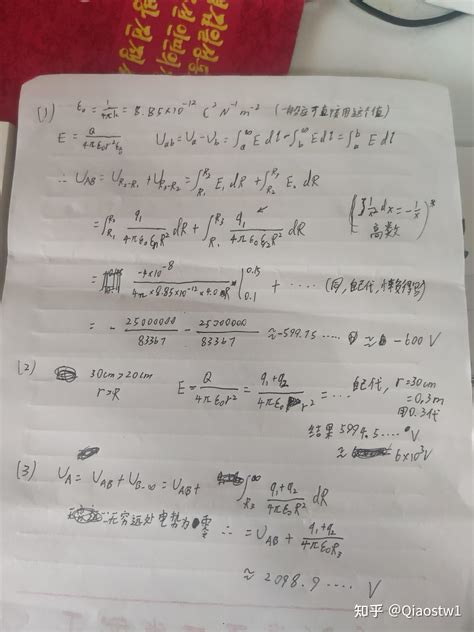 (1) ε₀ = 1/4πk = 8.85×10⁻¹² C² N⁻¹ m⁻² (一般应可直接用这个值)
E = Q/4πε₀r²ε₀ U_ab = U_a - U_b = ∫_a^∞ E dl - ∫_b^∞ E dl = ∫_a^b E dl
∴ U_AB = U_R₂-R₁ + U_R₃-R₂ = ∫_R₁^R₂ E₁ dR + ∫_R₂^R₃ E₂ dR
= ∫_R₁^R₂ q₁/4πε₀εR² dR + ∫_R₂^R₃ q₁/4πε₀ε₂R² dR (∫1/x² dx = -1/x)
高数
= -4×10⁻⁸/4π×8.85×10⁻¹²×4.0 |0.15 0.1 + ······ (同,
= - 25000000/83367 - 25000000/83367 ≈ -599.75 ····· ≈ -600 V
(2) 30cm > 20cm E = Q/4πε₀r² = q₁+q₂/4πε₀r² = ··· 代, r = 30cm
r > R = 0.3m
用0.3代
结果 5994.5 ···· V
≈ 6×10³ V
(3) U_A = U_AB + U_B-∞ = U_AB + ∫_R₃^∞ q₁+q₂/4πε₀R² dR
∵ 无穷远处电势为零 ∴ = U_AB + q₁+q₂/4πε₀R₃
≈ 2098.9 ···· V
知乎 @Qiaostw1